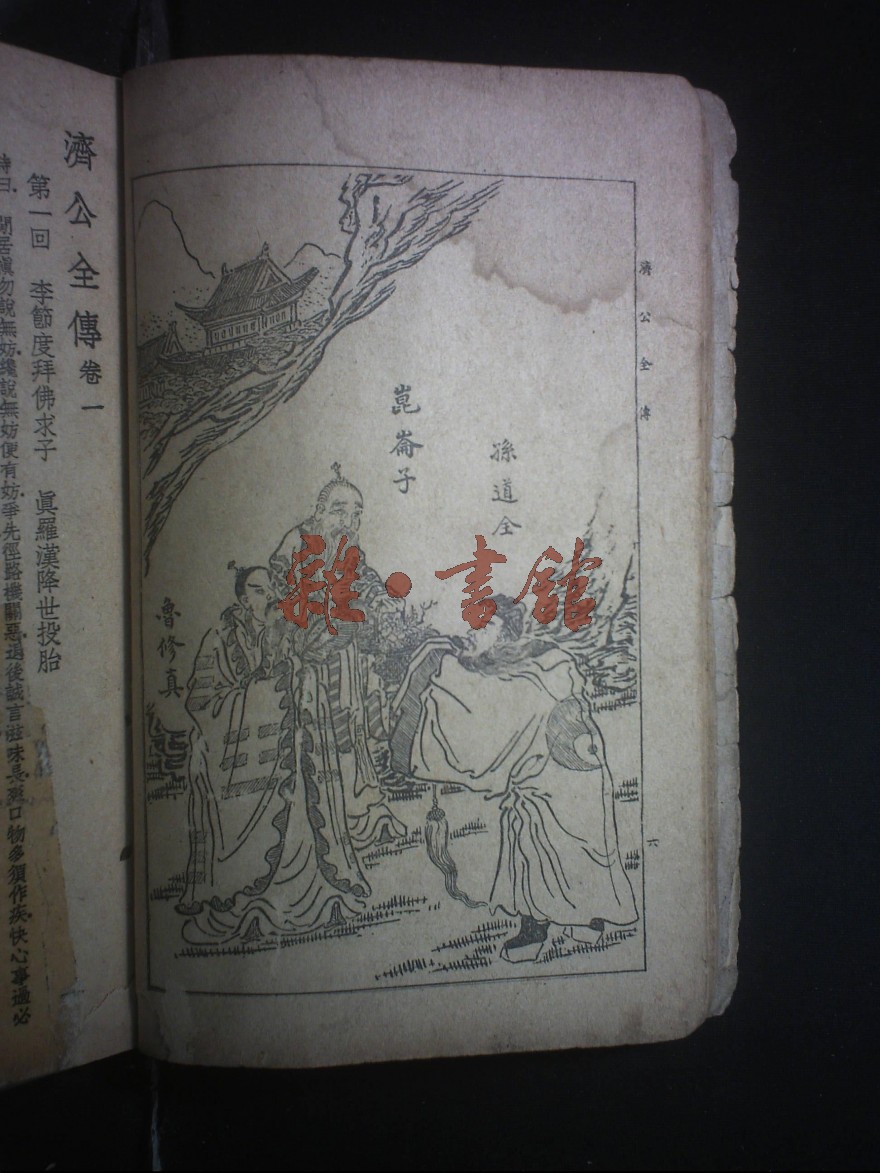 濟公全傳
六
孫道全
崑崙子
魯修真
雜·書館
濟公全傳卷一
第一回 李節度拜佛求子 眞羅漢降世投胎
詩曰 閒居愼勿說無妨纔說無妨便有妨爭先徑路機關惡退後誠言滋味長爽口物多須作疾快心事過必